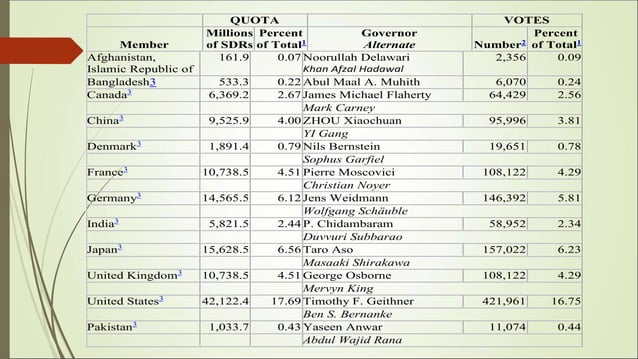 QUOTA VOTES
Millions Percent Governor Percent
Member of SDRs of Total1 Alternate Number2 of Total1
Afghanistan, 161.9 0.07 Noorullah Delawari 2,356 0.09
Islamic Republic of Khan Afzal Hadawal
Bangladesh3 533.3 0.22 Abul Maal A. Muhith 6,070 0.24
Canada3 6,369.2 2.67 James Michael Flaherty 64,429 2.56
Mark Carney
China3 9,525.9 4.00 ZHOU Xiaochuan 95,996 3.81
YI Gang
Denmark3 1,891.4 0.79 Nils Bernstein 19,651 0.78
Sophus Garfiel
France3 10,738.5 4.51 Pierre Moscovici 108,122 4.29
Christian Noyer
Germany3 14,565.5 6.12 Jens Weidmann 146,392 5.81
Wolfgang Schäuble
India3 5,821.5 2.44 P. Chidambaram 58,952 2.34
Duvvuri Subbarao
Japan3 15,628.5 6.56 Taro Aso 157,022 6.23
Masaaki Shirakawa
United Kingdom3 10,738.5 4.51 George Osborne 108,122 4.29
Mervyn King
United States3 42,122.4 17.69 Timothy F. Geithner 421,961 16.75
Ben S. Bernanke
Pakistan3 1,033.7 0.43 Yaseen Anwar 11,074 0.44
Abdul Wajid Rana